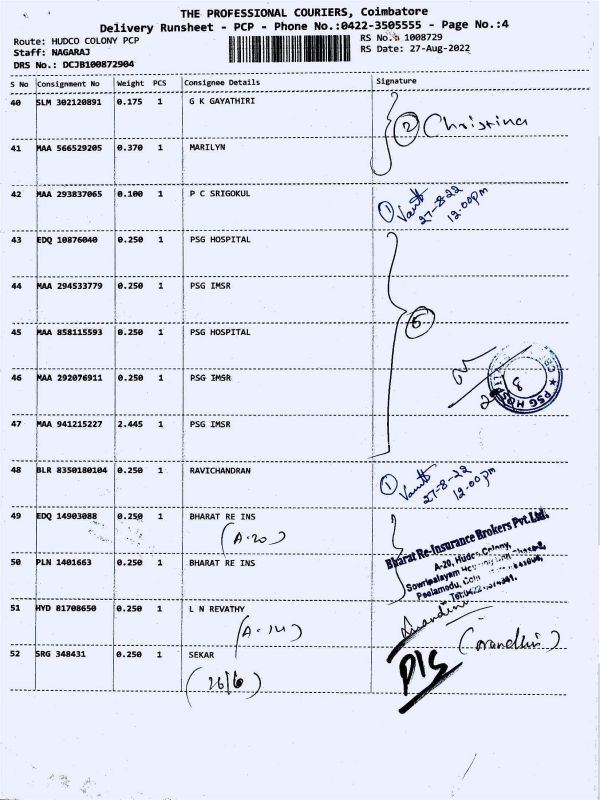 THE PROFESSIONAL COURIERS, Coimbatore
Delivery Runsheet - PCP - Phone No.:0422-3505555 - Page No.:4
Route: HUDCO COLONY PCP
RS No.: 1008729
Staff: NAGARAJ
RS Date: 27-Aug-2022
DRS No.: DCJB100872904
S No Consignment No Weight PCS Consignee Details Signature
40 SLM 302120891 0.175 1 G K GAYATHIRI
2 Christina
41 MAA 566529205 0.370 1 MARILYN
42 MAA 293837065 0.100 1 P C SRIGOKUL
1 27-8-22
12.00pm
43 EDQ 10876040 0.250 1 PSG HOSPITAL
44 MAA 294533779 0.250 1 PSG IMSR
5
45 MAA 858115593 0.250 1 PSG HOSPITAL
46 MAA 292076911 0.250 1 PSG IMSR
47 MAA 941215227 2.445 1 PSG IMSR
48 BLR 8350180104 0.250 1 RAVICHANDRAN
1 27-8-22
12.00pm
49 EDQ 14903088 0.250 1 BHARAT RE INS
(A-20)
Bharat Re-Insurance Brokers Pvt.Ltd.
A-20, Hudco Colony,
50 PLN 1401663 0.250 1 BHARAT RE INS
51 HYD 81708650 0.250 1 L N REVATHY
(A-14)
52 SRG 348431 0.250 1 SEKAR
(26/6)